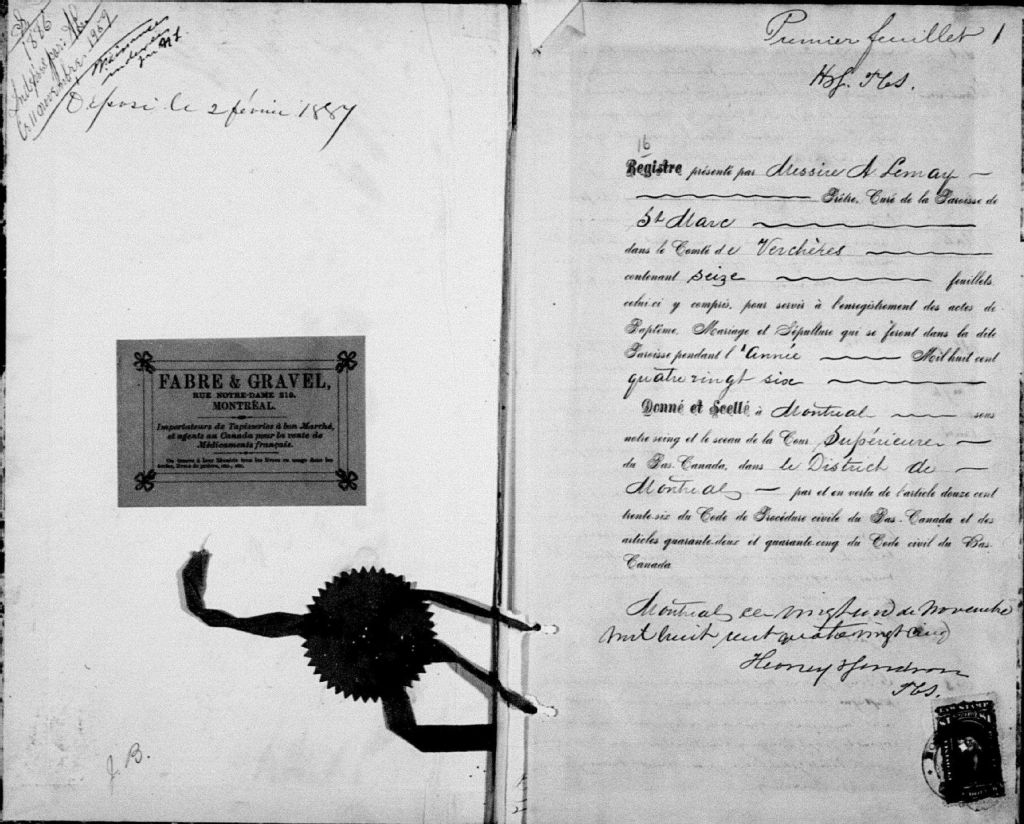 1886
Indexé par
11 novembre 1952
Déposé le 2 février 1887
FABRE & GRAVEL,
RUE NOTRE-DAME 219.
MONTRÉAL.
Importateurs de Tapisseries à bon Marché,
et agents au Canada pour la vente de
Médicaments français.
On trouve à leur librairie tous les livres en usage dans les
écoles, livres de prières, etc., etc.
J. B.
Premier feuillet 1
16
Registre présenté par Messire A Lemay
Prêtre, Curé de la Paroisse de
St Marc
dans le Comté de Verchères
contenant seize feuillets,
celui-ci y compris, pour servir à l'enregistrement des actes de
Baptême, Mariage et Sépulture qui se feront dans la dite
Paroisse pendant l'Année Mil huit cent
quatre vingt six
Donné et Scellé à Montréal sous
notre seing et le sceau de la Cour Supérieure
du Bas-Canada, dans le District de
Montréal par et en vertu de l'article douze cent
trente-six du Code de Procédure civile du Bas-Canada et des
articles quarante-deux et quarante-cinq du Code civil du Bas-
Canada
Montréal ce vingt un de novembre
mil huit cent quatre vingt cinq